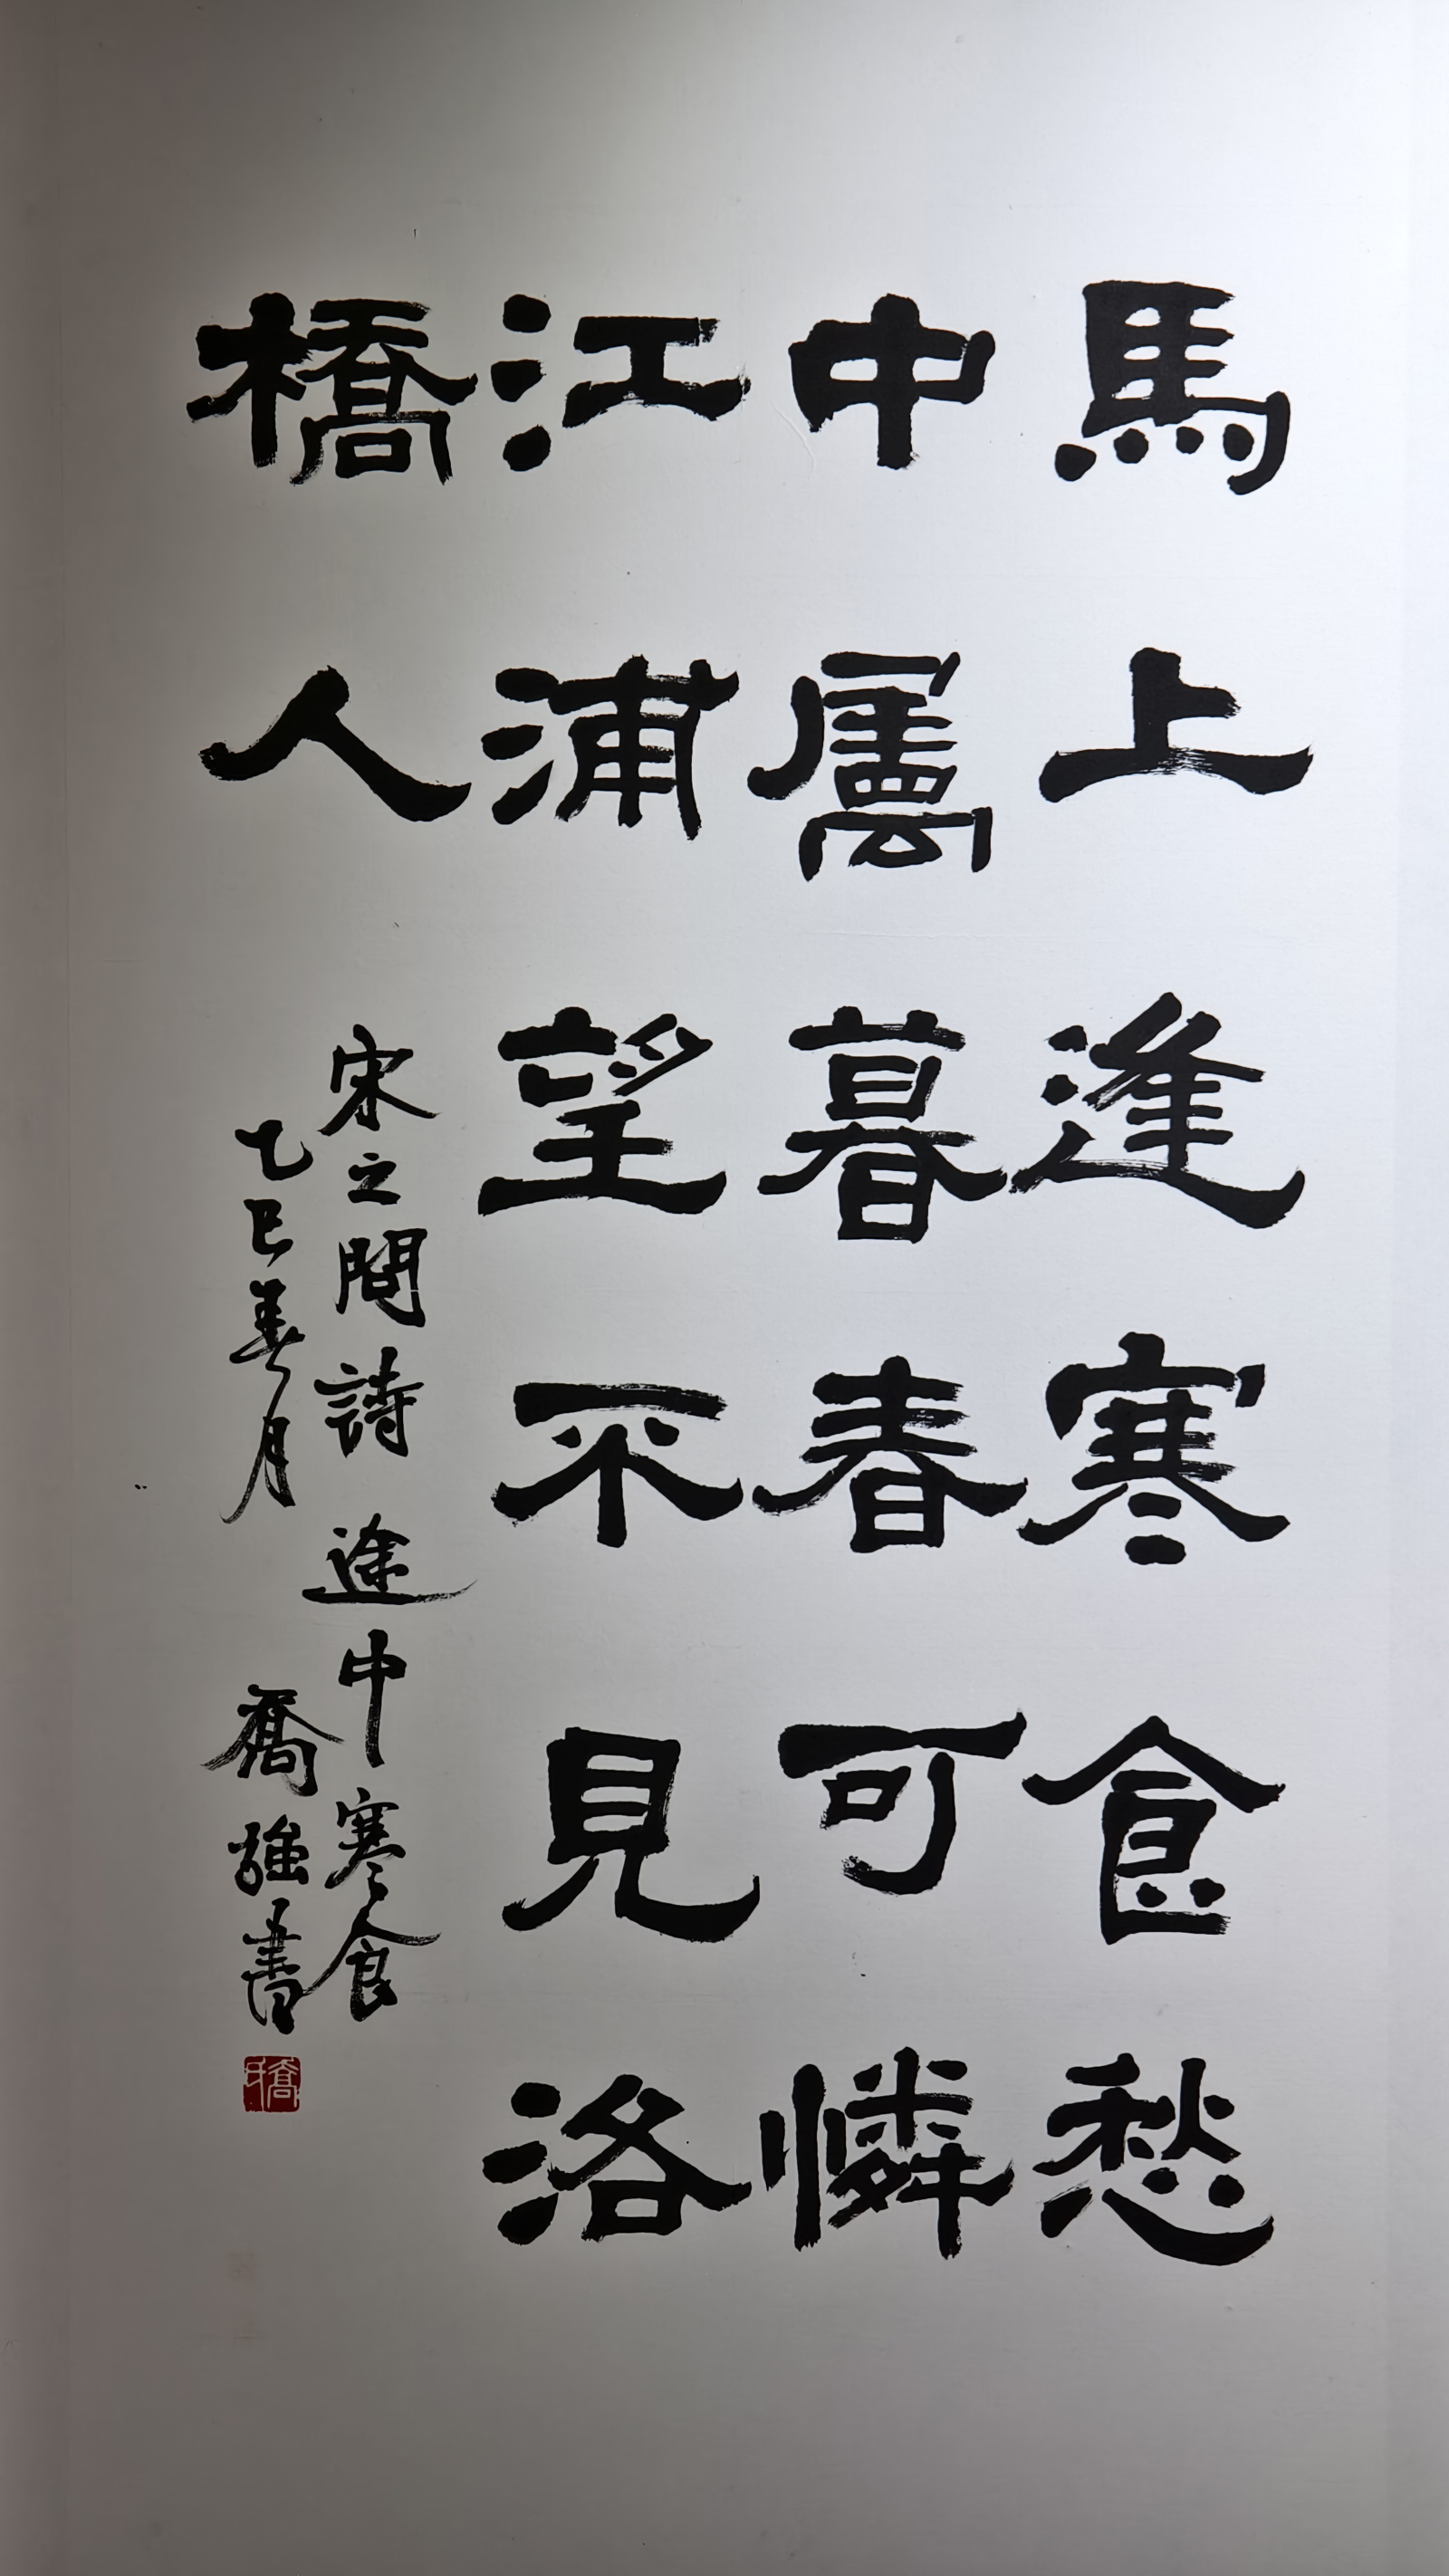 馬上逢寒食愁
中屬暮春可憐
江浦望不見洛
橋人
宋之問詩途中寒食
乙巳春月 喬強書